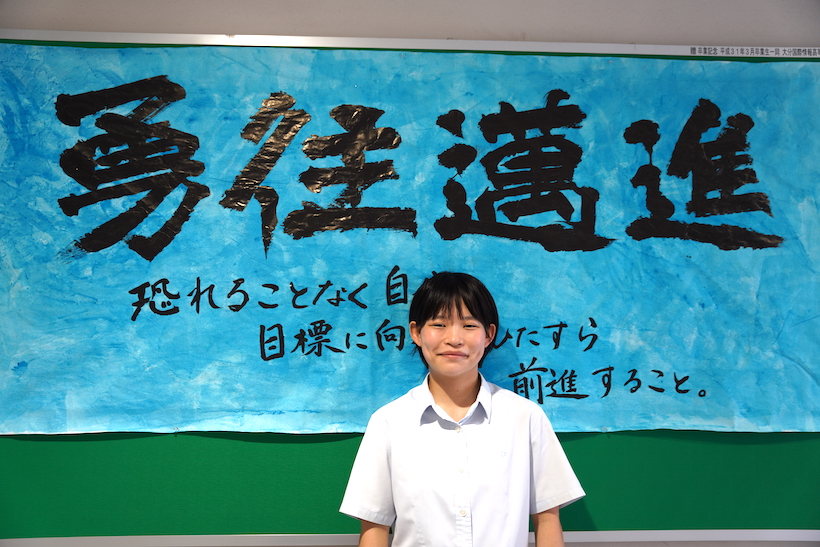 贈 卒業記念 平成31年3月卒業生一同 大分国際情報高
勇往邁進
恐れることなく自
目標に向 ひたすら
前進すること。